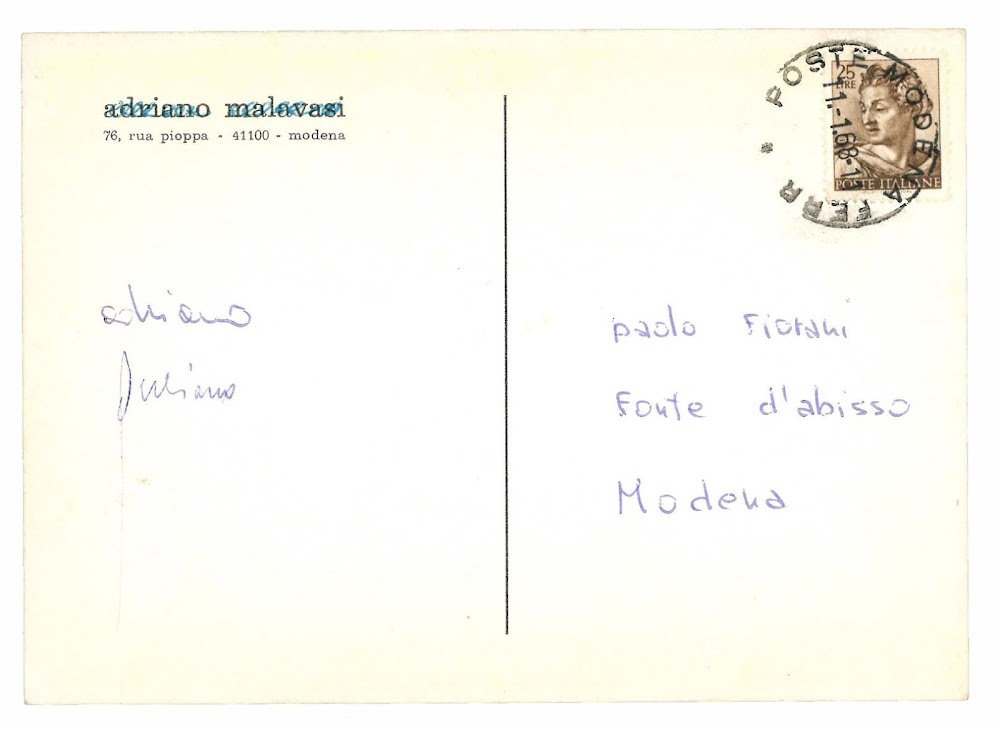 adriano malavasi
76, rua pioppa - 41100 - modena
25
LIRE
POSTE ITALIANE
POSTE MODENA FERR *
11.-1.68-1
adriano
Juliano
paolo Fiorani
Fonte d'abisso
Modena